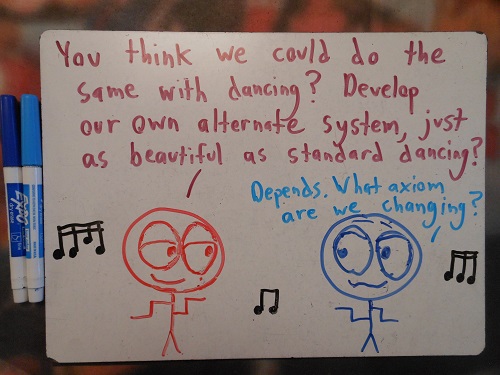 You think we could do the
same with dancing? Develop
our own alternate system, just
as beautiful as standard dancing?
Depends. What axiom
are we changing?
EXPO